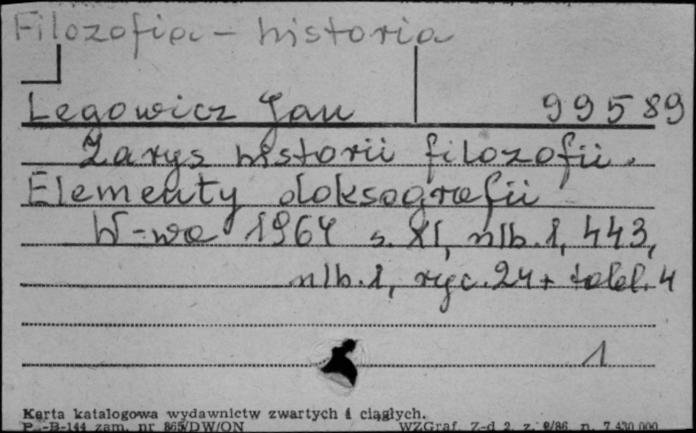 Filozofia - historia
Legowicz Jan 99589
Zarys historii filozofii.
Elementy doksografii
W-wa 1964 s. XI, nlb. 1, 443,
nlb. 1, ryc. 24 + tabl. 4
1
Karta katalogowa wydawnictw zwartych i ciągłych.
-B-144 zam. nr 865/DW/ON WZGraf. Z-d 2, z. 9/86. n. 7.430.000